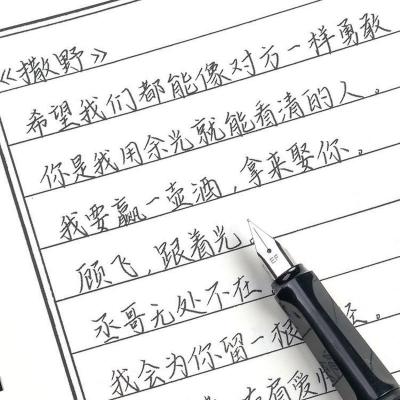 《撒野》
希望我们都能像对方一样勇敢
你是我用余光就能看清的人。
我要赢一壶酒，拿来娶你。
顾飞，跟着光
丞哥无处不在
我会为你留一
EF